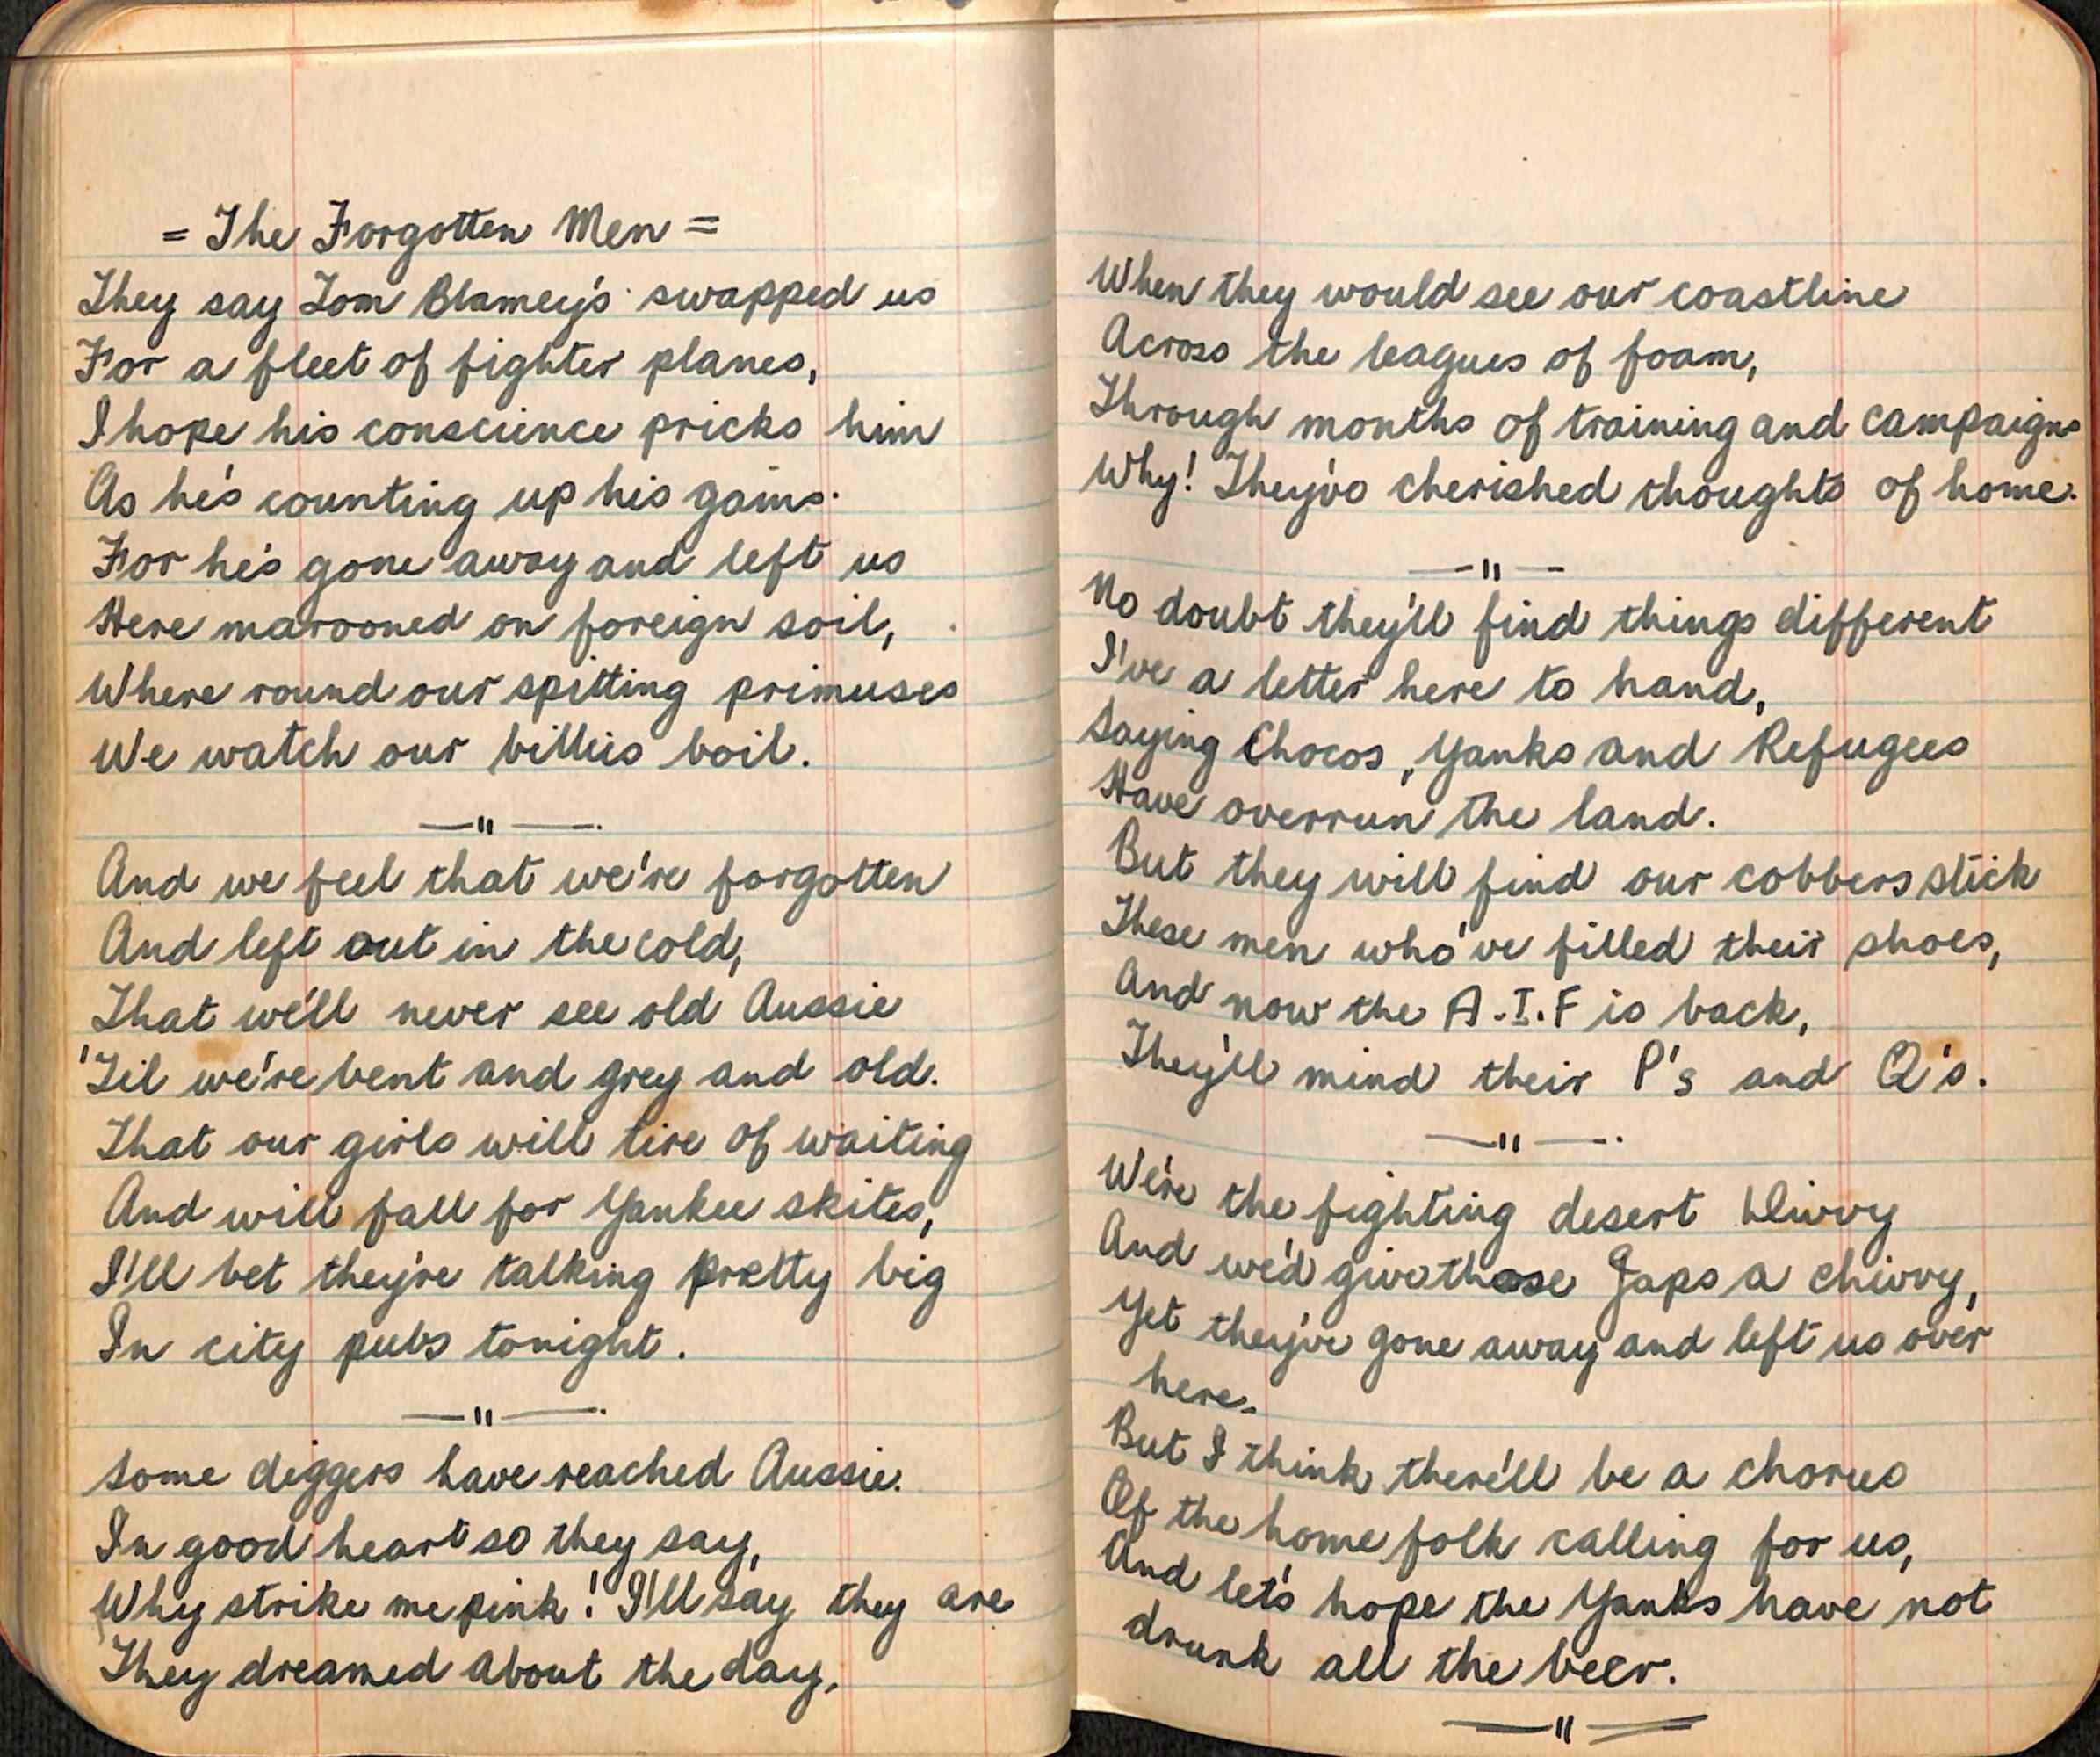 = The Forgotten Men =
They say Tom Blamey's swapped us
For a fleet of fighter planes,
I hope his conscience pricks him
As he's counting up his gains.
For he's gone away and left us
Here marooned on foreign soil,
Where round our spitting primuses
We watch our billies boil.
—"—.
And we feel that we're forgotten
And left out in the cold,
That we'll never see old Aussie
'Til we're bent and grey and old.
That our girls will tire of waiting
And will fall for Yankee skites,
I'll bet they're talking pretty big
In city pubs tonight.
—"—.
Some diggers have reached Aussie.
In good heart so they say,
Why strike me pink! I'll say they are
They dreamed about the day,
When they would see our coastline
Across the leagues of foam,
Through months of training and campaigns
Why! They've cherished thoughts of home.
—"—
No doubt they'll find things different
I've a letter here to hand,
Saying Chocos, Yanks and Refugees
Have overrun the land.
But they will find our cobbers stick
These men who've filled their shoes,
And now the A.I.F is back,
They'll mind their P's and Q's.
—"—.
We're the fighting desert Divvy
And we'd give those Japs a chivvy,
Yet they've gone away and left us over
here.
But I think there'll be a chorus
Of the home folk calling for us,
And let's hope the Yanks have not
drunk all the beer.
—"—